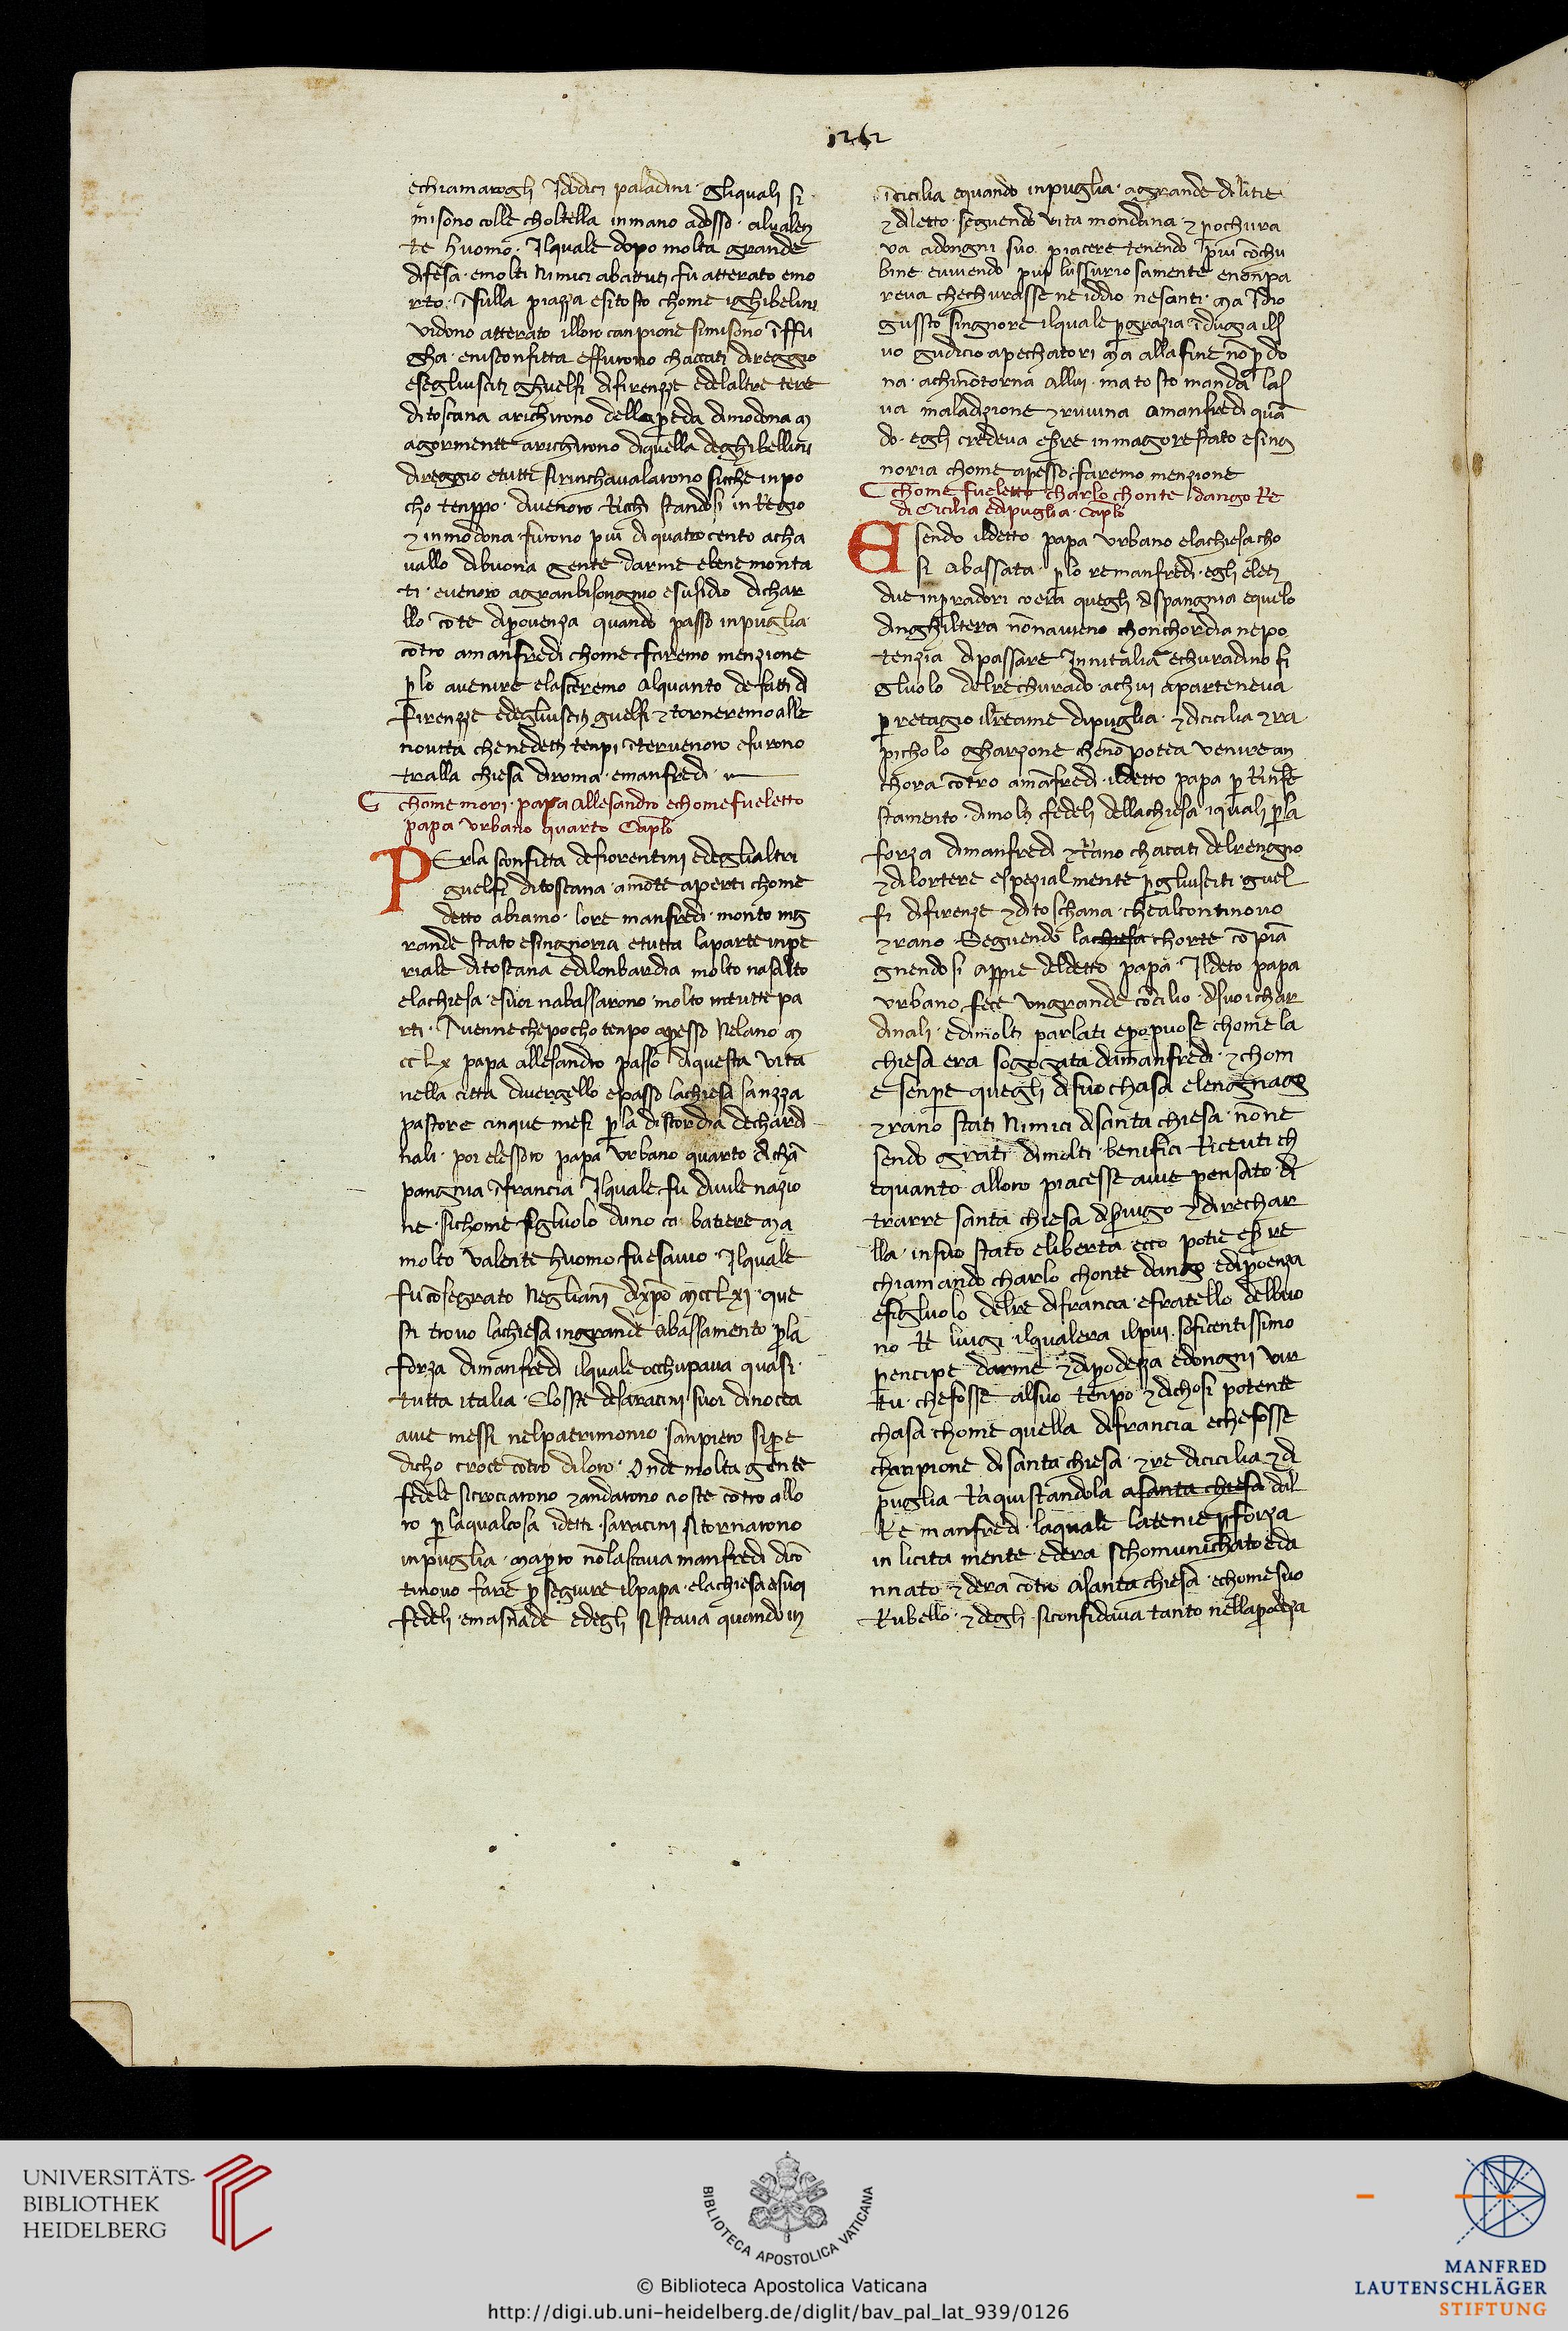 1262
echiamarogli Idodici paladini · gliquali si
misono colle choltella inmano adosso · alvalen
te huomo · Ilquale dopo molta grande
difesa · emolti Nimici abattuti fu atterato emo
rto · Isulla piazza esitosto chome ighibelini
vidono atterato illoro canpione simisono īffu
gha · enisconfitta effurono chacciati direggio
eseglivsciti ghuelfi difirenzze edelaltre tere
ditoscana arichirono dellapreda dimodona m
agormente arichirono diquella deghibellini
direggio etutti sirinchavalarono sicche inpo
cho tenppo · divenono Richi standosi inRegio
⁊ inmodona · furono piu di quatrocento acha
vallo dibuona gente darme ebene monta
ti · evenoro agranbisongnio esusidio dichar
llo cōte diprovenza quando passo inpuglia
cōtro amanfredi chome faremo menzione
p lo avenire elasceremo alquanto de fatti di
firenzze edeglivsciti guelfi ⁊ torneremo alle
novita chenedetti tenpi ītervenoro efurono
tralla chiesa diroma · emanfredi ·
chome mori · papa allesandro echomefueletto
papa vrbano quarto Caplo
PErla sconfitta defiorentini edeglialtri
guelfi ditoscana · amōte aperti chome
detto abiamo · lore manfredi · monto ing
rande stato esingnoria etutta laparte inpe
riale ditoscana edilonbardia molto nasalto
elachiesa · esuoi nabassarono molto intutte pa
rti · Avenne chepocho tenpo apresso Nelano m
cclx papa allesandro passo diquesta vita
nella citta diverzello epasso lachiesa sanzza
pastore cinque mesi p la discordia dechardi
nali · poi elessoro papa vrbano quarto dichā
pangnia īfrancia Ilquale fu divile nazio
ne · sichome figliuolo duno ca batiere ma
molto valente huomo fuesavio · Ilquale
fu cōsegrato Negliani dixpo mcclxi · que
sti trovo lachiesa ingrande abassamento pla
forza dimanfredi ilquale occhupava quasi ·
tutta italia · Eloste desaracini suoi dinocea
avie messi nelpatrimonio sanpiero sipre
dicho croce cōtro diloro · Onde molta gente
fedele sicrociarono ⁊andarono aoste cōtro allo
ro p laqualcosa idetti saracini sitornarono
inpuglia · mapro nōlasciava manfredi dicō
tinovo fare p seguire ilpapa · elachiesa esuoi
fedeli · emasnade edegli sistava quando in
īcicilia equando inpuglia · aggrande dilitie
⁊diletto · seguendo vita mondana ⁊ pochura
va adongni suo piacere tenendo piu cōchu
bine evivendo piu lussuriosamente enonpa
reva chechurasse ne iddio nesanti · ma Idio
giussto singnore ilquale pgrazia īdugia ils
uo giudicio apechatori ma allafine nōpdo
na · achinōtorna allui · ma tosto manda las
ua maladizione ⁊rruina amanfredi quā
do · egli credeva essere inmagore stato esing
noria chome apesso faremo menzione
chome fueletto charlo chonte dango Re
di Cicilia edipuglia · Caplo
Esendo ildetto papa vrbano elachiesa cho
si abassata · plo remanfredi · egli eleti
due inpradori coera quegli dispangnia equelo
dinghiltera nōnavieno chonchordia nepo
tenzia dipassare Innitalia echuradino fi
gluolo delrechurado · achui aparteneva
p retaggio ilreame dipuglia · ⁊dicicilia ⁊ra
picholo gharzone chenō potea venire an
chora cōtro amāfredi · ildetto papa p Rinfre
stamento · dimolti fedeli dellachiesa · iquali pla
forza dimanfredi ⁊rano chacati delrengno
⁊dilortere espezialmente pglivsciti guel
fi difirenze ⁊ditoschana · chealcontinovo
⁊rano Seguendo lachiesa chorte cōpiā
gnendosi appie deldetto papa · Ildeto papa
vrbano fece vngrande cōcilio · disuoichar
dinali · edimolti parlati epropuose chome la
chiesa era sogogata damanfredi · ⁊chom
e senpre quegli disuo chasa elengnago
⁊rano stati Nimici disanta chiesa · nōne
sendo grati dimolti benifici Riceuti ch
equanto alloro piacesse avie pensato di
trarre santa chiesa dservigo ⁊direchar
lla · insuo stato eliberta · ecco potie essre
chiamando charlo chonte dango edipoenza
efigluolo delre difrancia · efratello delbuo
no Re luigi · ilqualera ilpiu · soficentissimo
pencipe darme ⁊dipodezza edongni vir
tu · chefosse alsuo tenpo · ⁊dichosi potente
chasa chome quella difrancia echefosse
chanpione disanta chiesa · ⁊re dicicilia ⁊di
puglia Raquistandola asanta chiesa dal
Re manfredi · laquale latenie pforza
in licita mente · edera schomunichato eda
nnato ⁊dera cōtro asanta chiesa · echome suo
Rubello · ⁊degli siconfidava tanto nellaprodeza
UNIVERSITÄTS-
BIBLIOTHEK
HEIDELBERG
BIBLIOTECA APOSTOLICA VATICANA
© Biblioteca Apostolica Vaticana
http://digi.ub.uni-heidelberg.de/diglit/bav_pal_lat_939/0126
MANFRED
LAUTENSCHLÄGER
STIFTUNG